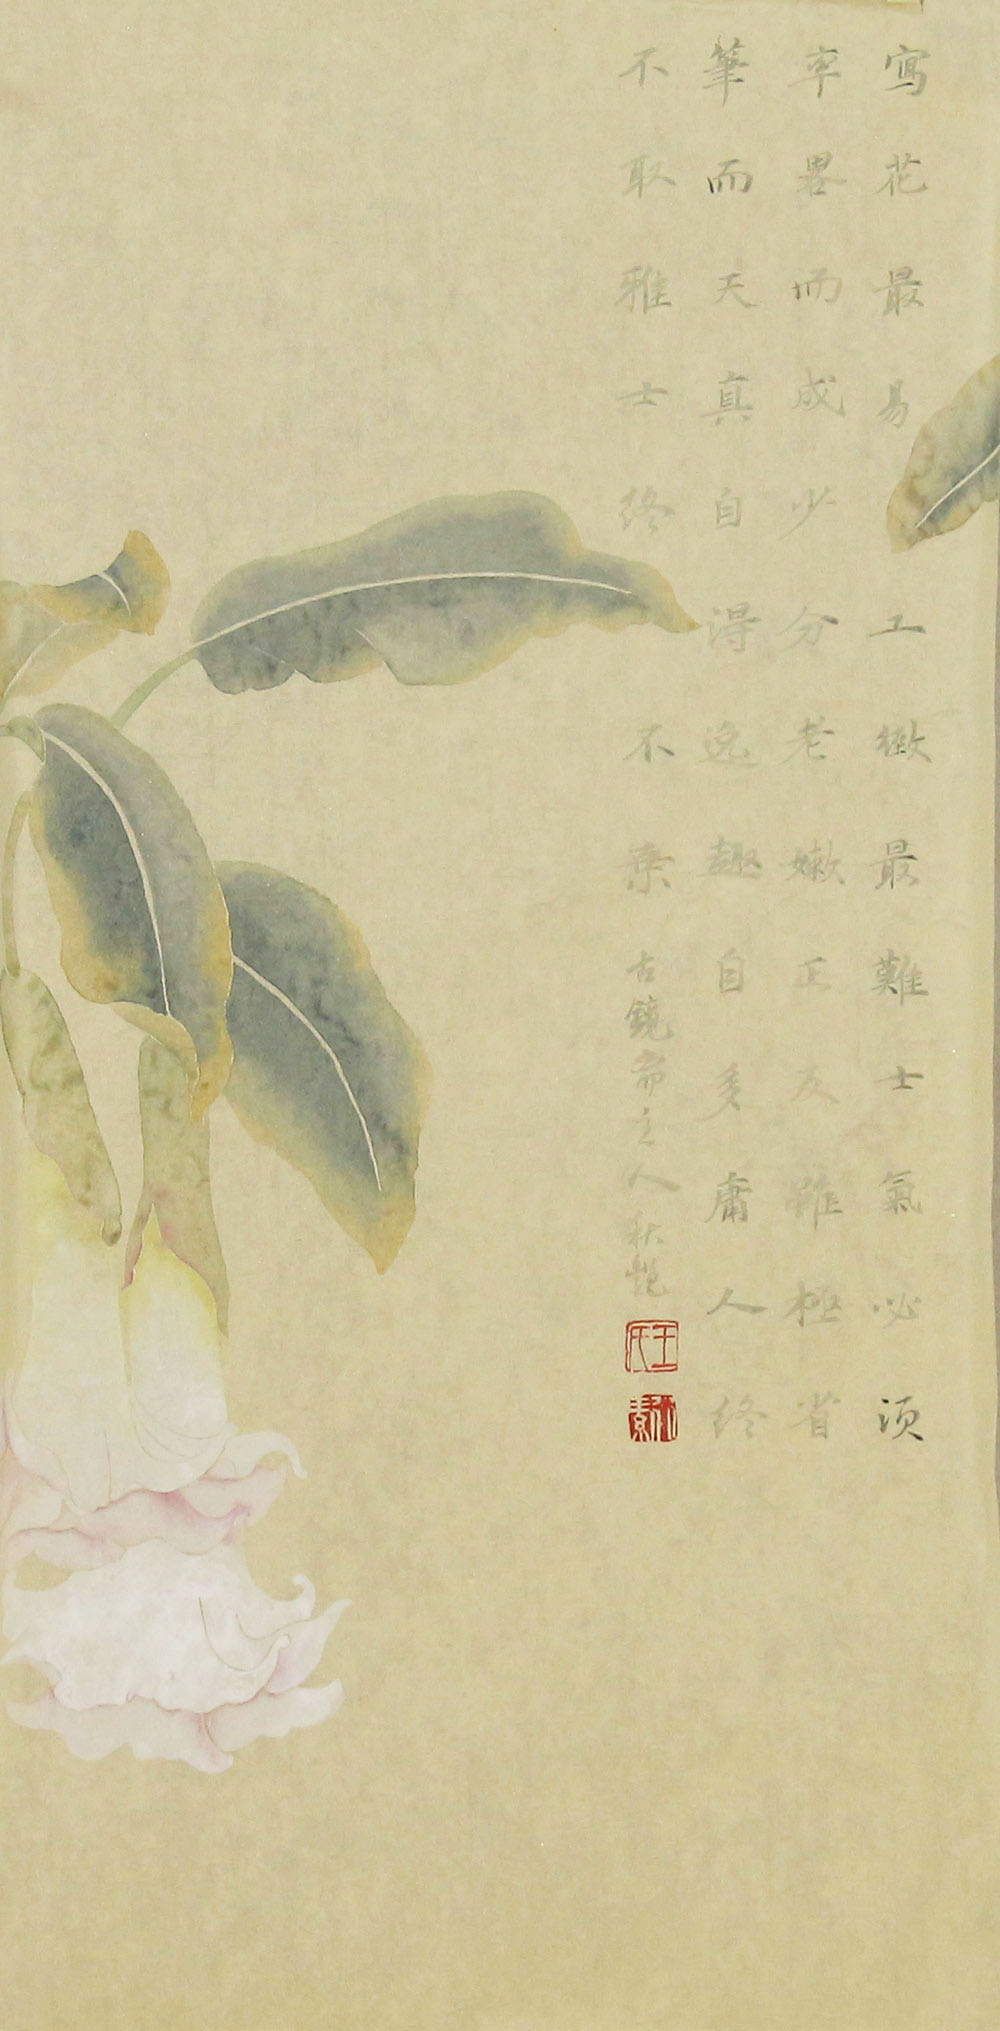 寫花最易工緻最難士氣必須
率畧而成少分老嫩正反雖極省
筆而天真自得逸趣自多庸人終
不取雅士終不棄
古鏡斋主人秋艳
王氏